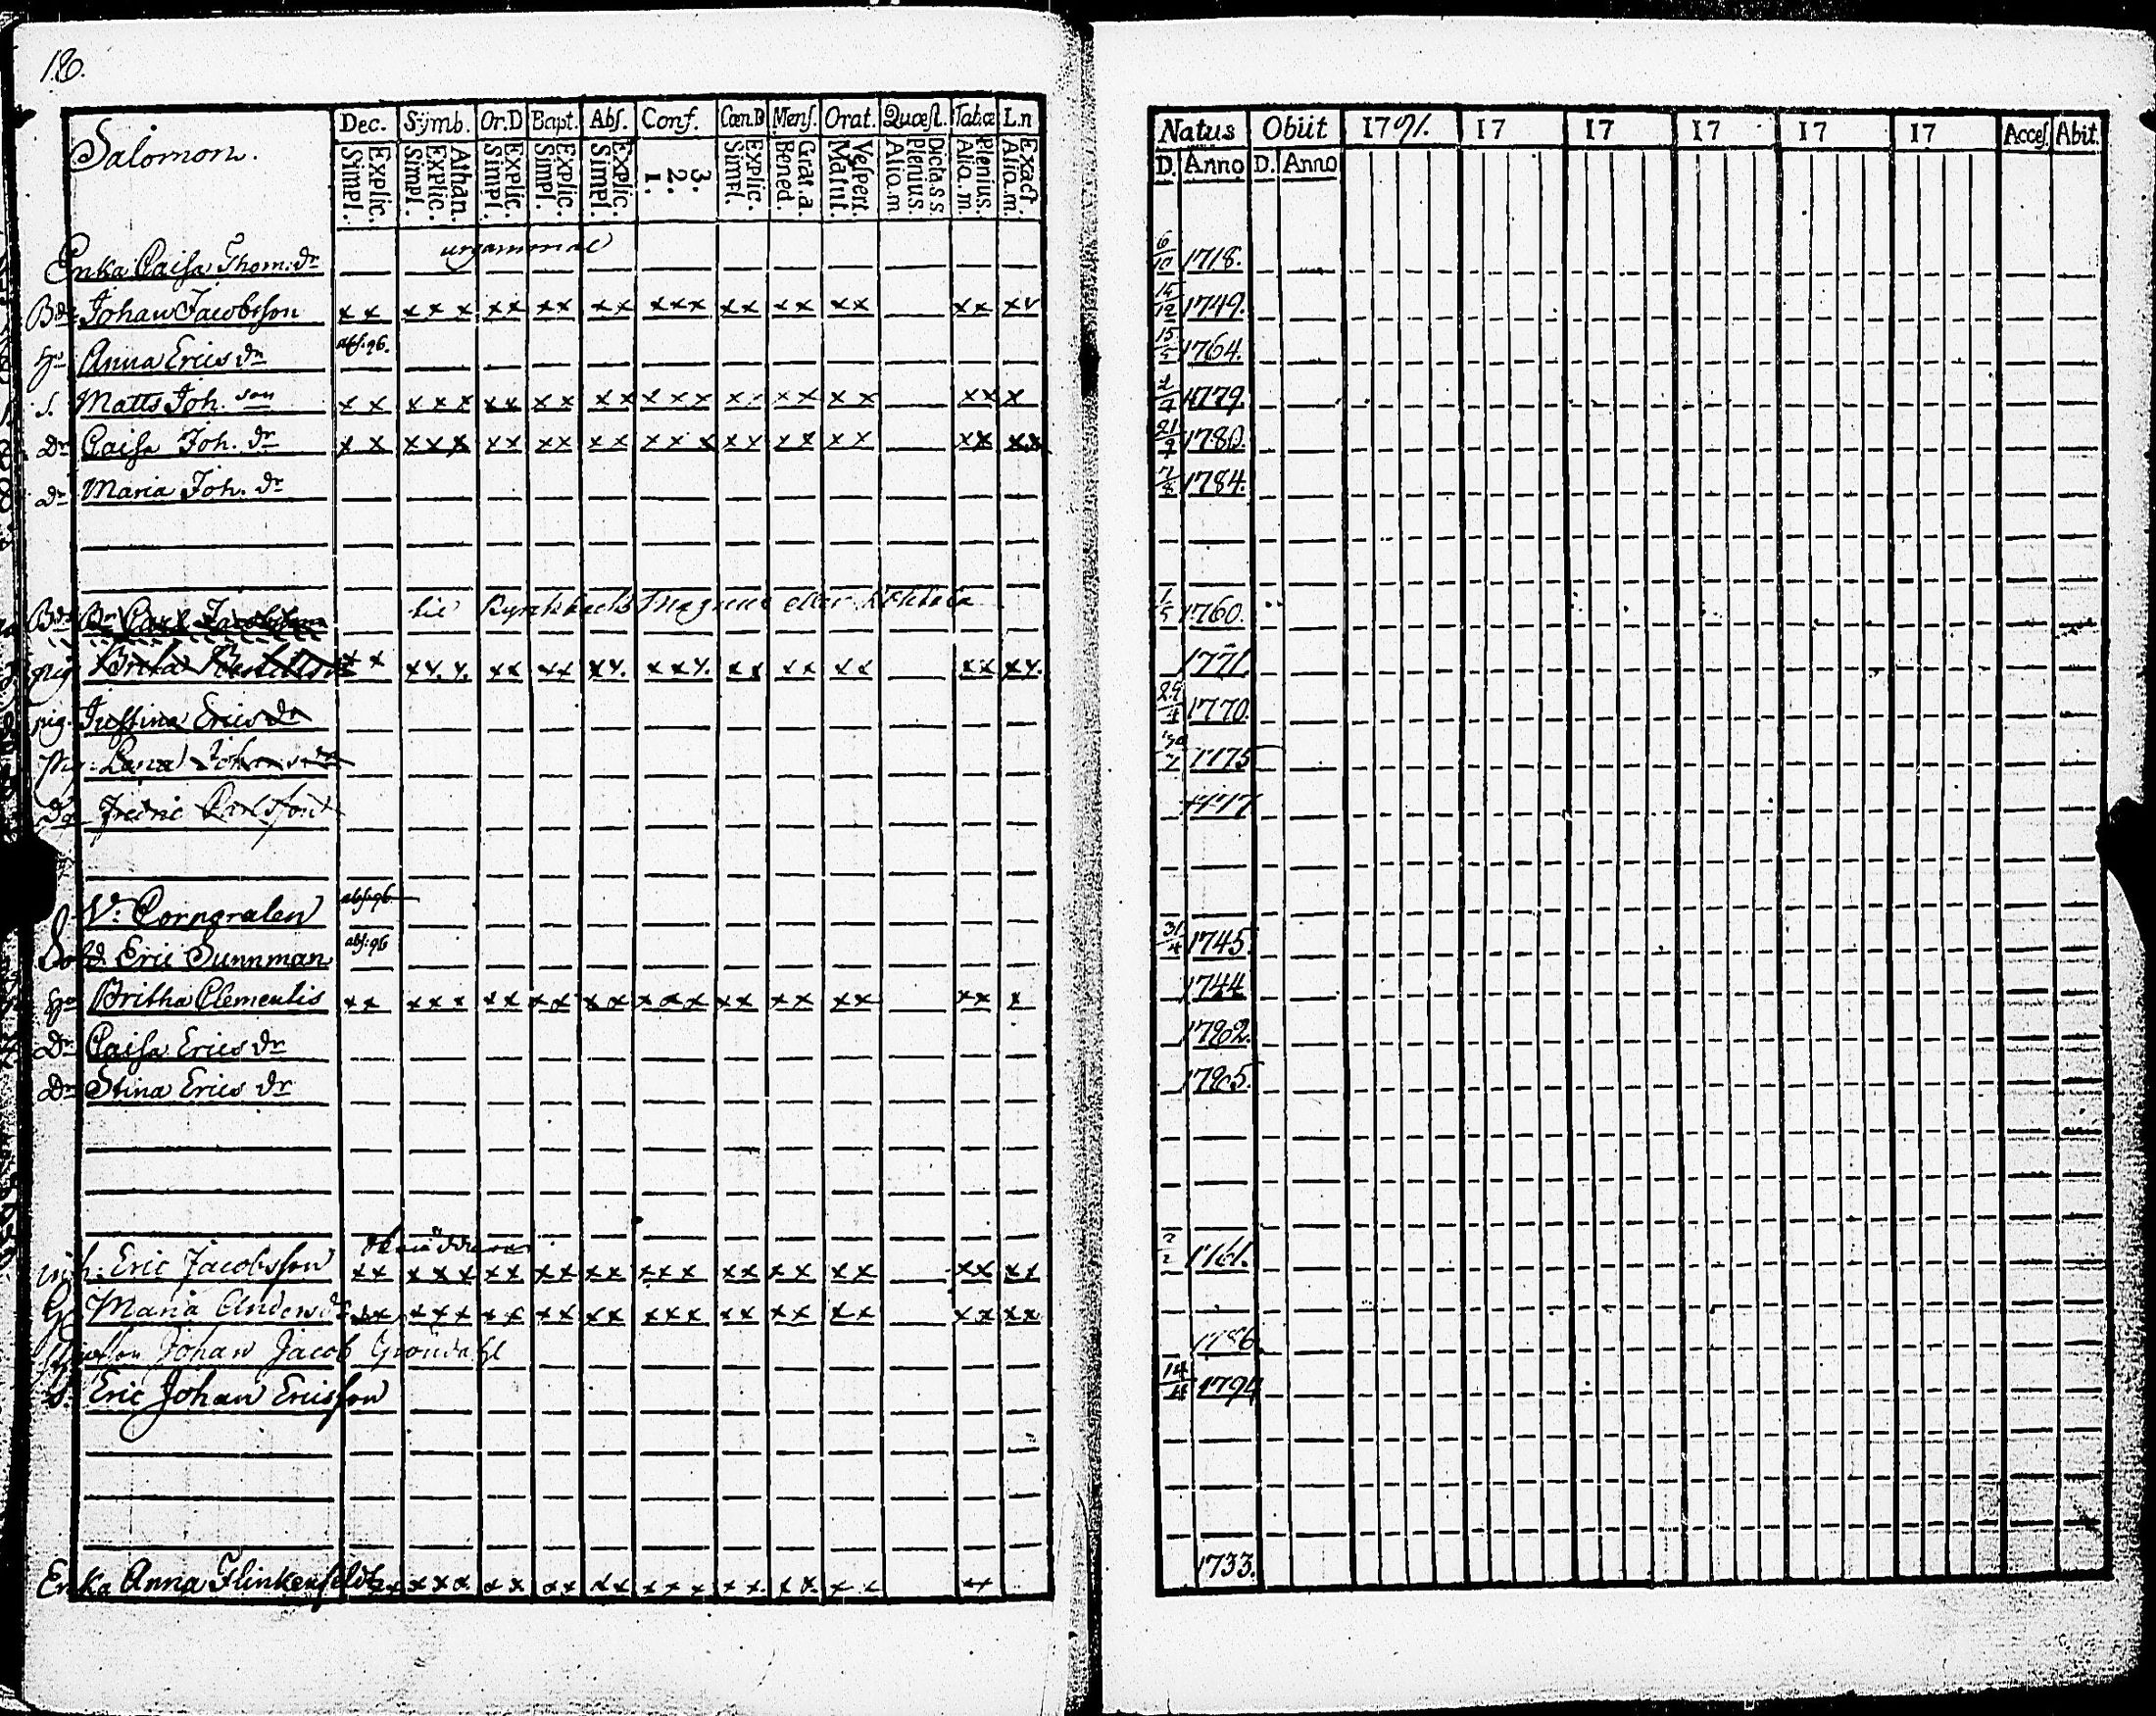 18.
Salomon.
Dec. Symb. Or.D Bapt. Abſ. Conf. Cœn.D Menſ. Orat. Quæſt. Tab.œ L.n
Explic. Simpl. Athan. Explic. Simpl. Explic. Simpl. Explic. Simpl. Explic. Simpl. 3. 2. 1. Explic. Simpl. Grat.a. Bened. Veſpert. Matut. Dicta.s.s. Plenius. Alio.m Plenius. Alio.m. Exact. Alio.m.
Natus Obiit 1791. 17 17 17 17 17 Acceſ. Abit.
D. Anno D. Anno
Enka Caisa Thom. dr urgammal 6/10 1718.
Bd. Johan Jacobsson x x x x x x x x x x x x x x x x x x x x x x x 1749.
hu Anna Erics dr abs. 96. 15/5 1764.
s. Matts Joh. son x x x x x x x x x x x x x x x x x x x x x x 1779.
Dr Caisa Joh. dr x x x x x x x x x x x x x x x x x x x x x x x 21/9 1780.
dr Maria Joh. dr 7/8 1784.
Br Carl Jacobsson 1/5 1760.
pig Brita x x x x x x x x x x x x x x x x x x x x x x x 1771.
pig. Justina Erics dr 1770.
Pig. Lena Johans dr 1775
Fredric Carlsson 1777
V. Corporalen abs. 96
Sold Eric Sunnman abs. 96 31/4 1745.
hu Britha Clementis x x x x x x x x x x x x x x x x x x x x x x 1744
Dr Caisa Erics dr
Dr Stina Erics dr
inh. Eric Jacobsson x x x x x x x x x x x x x x x x x x x x x x x 2/2 1761.
Maria Anders dr x x x x x x x x x x x x x x x x x x x x x x
Johan Jacob Gröndahl 1786.
s. Eric Johan Ericsson 14/11 1794
Enka Anna Flinkenfeldt x x x x x x x x x x x x x x x x x x x x x 1733.